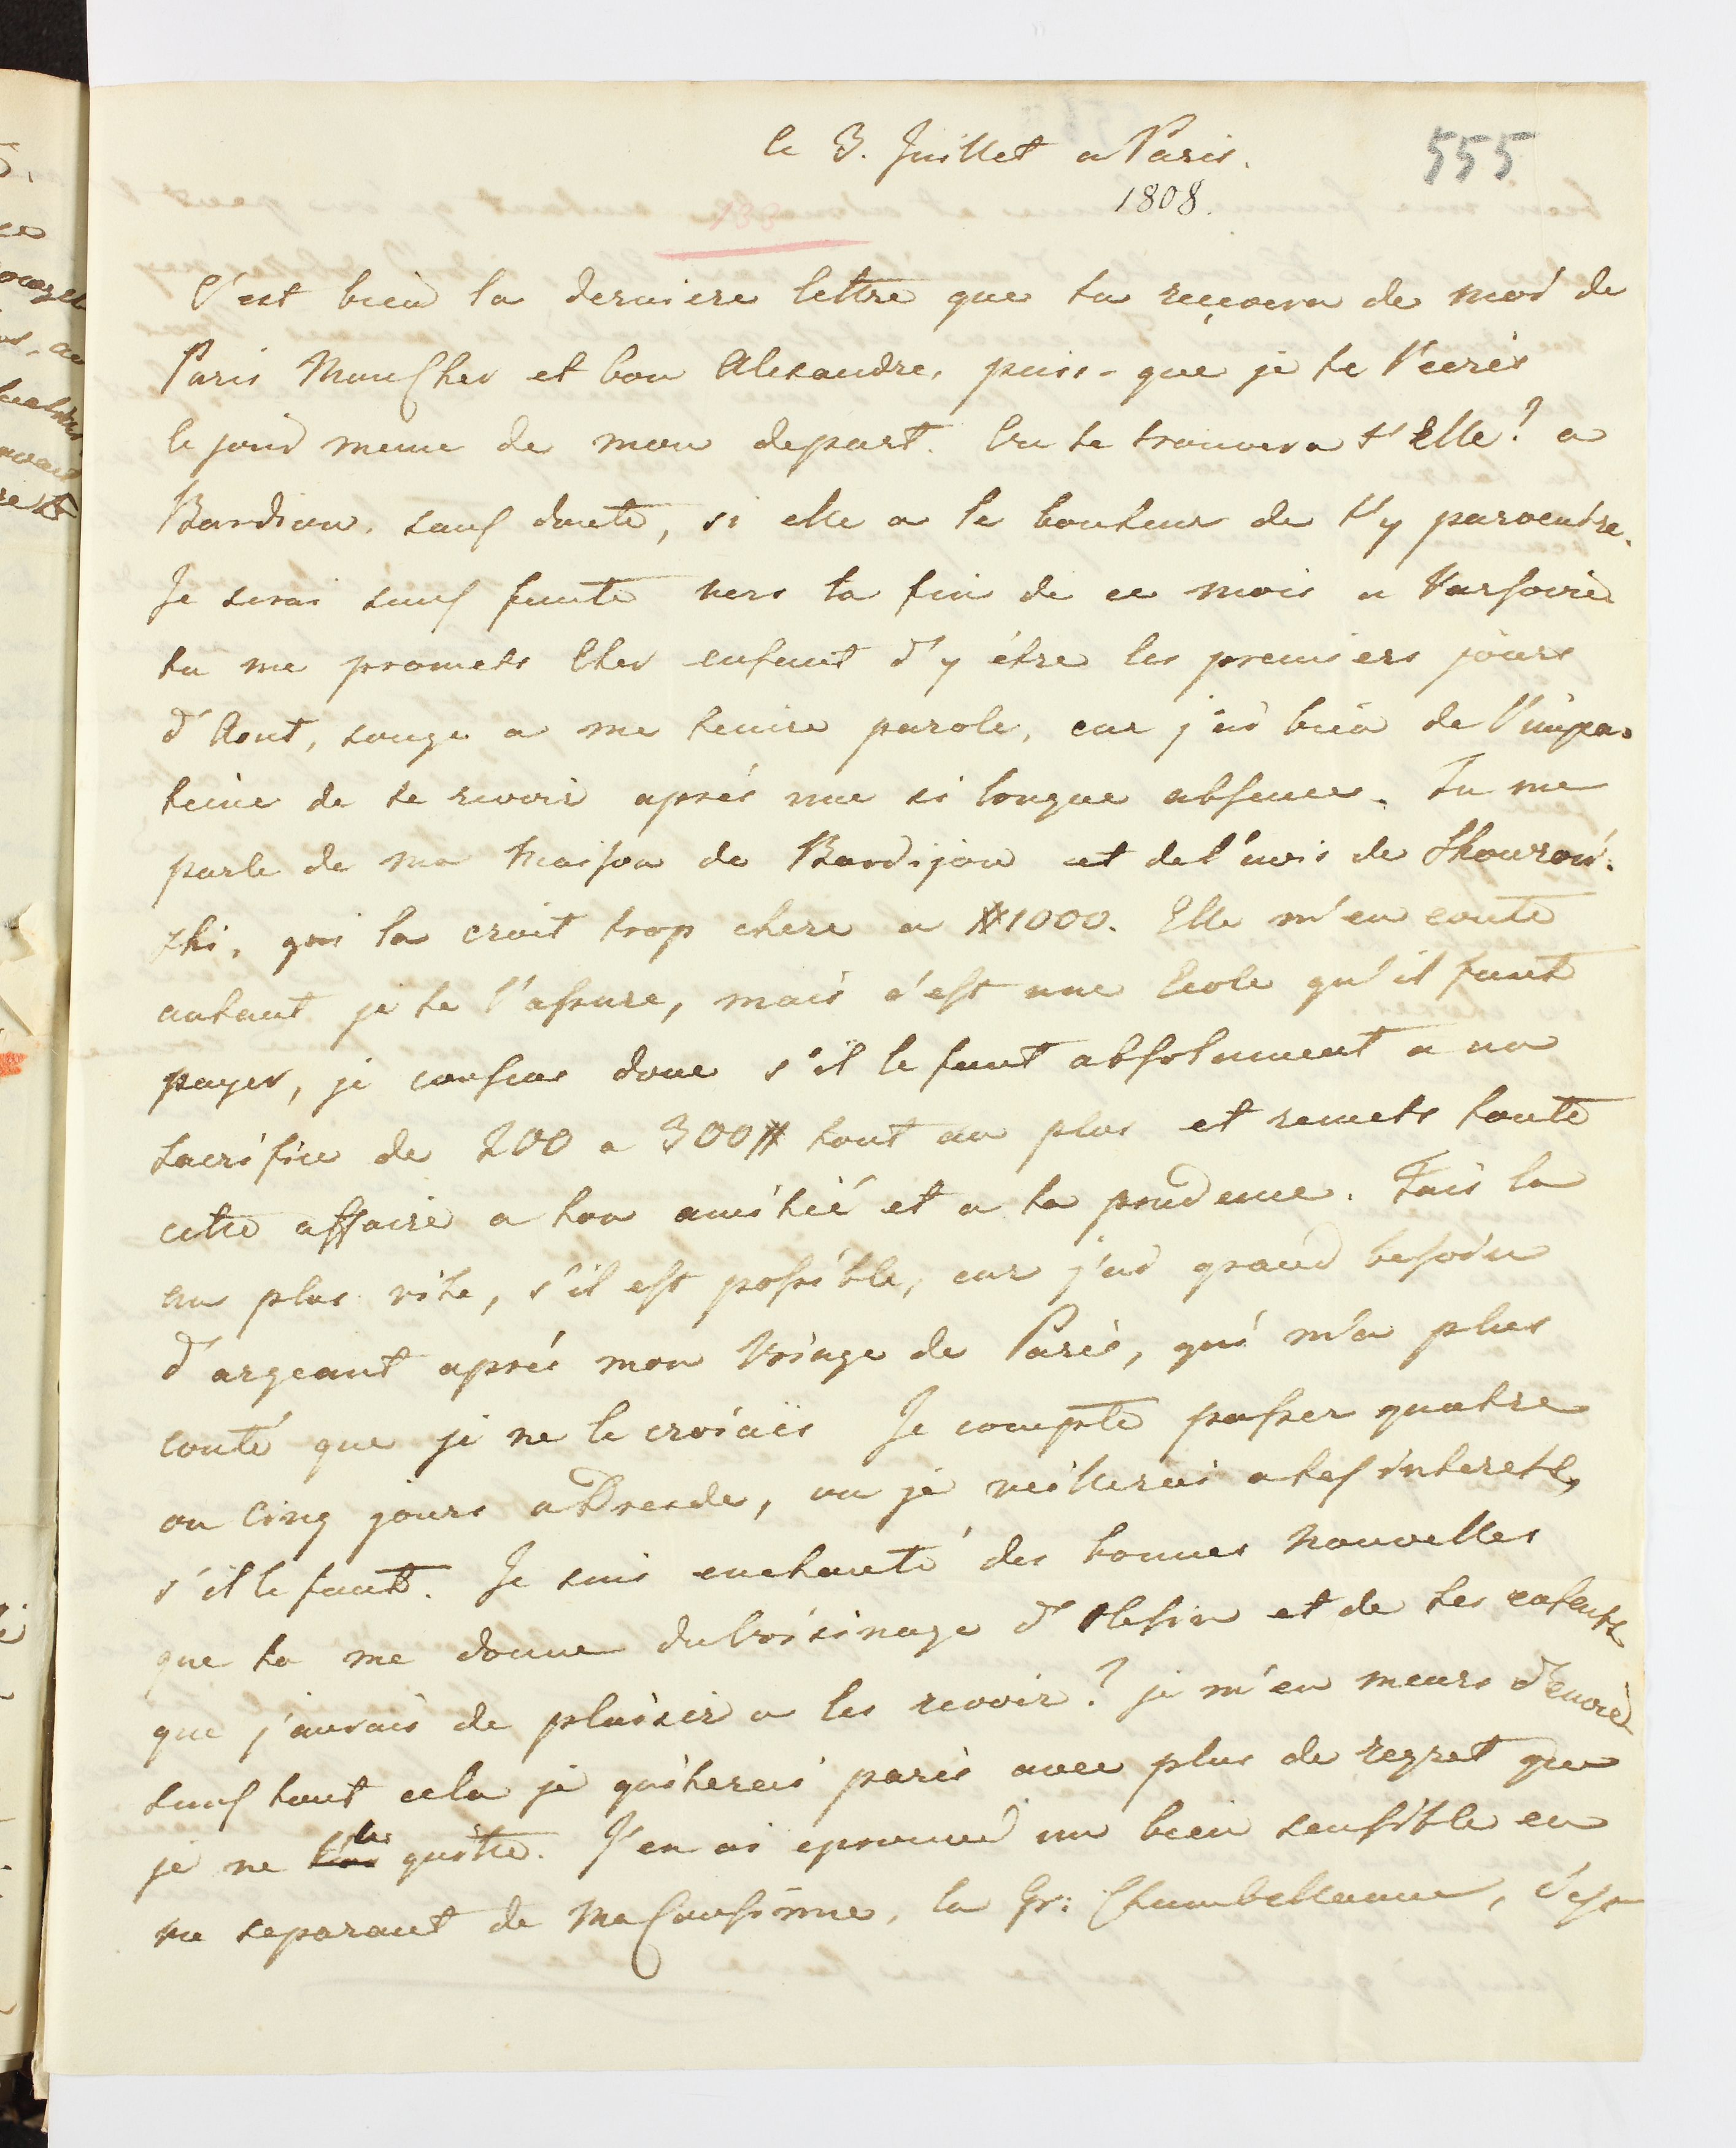 le 3. Juillet a Paris.
555
1808.
C'est bien la derniere lettre que tu reçevera de moi de
Paris Mon Cher et bon Alexandre, puis-que je te l'ecris
le jour meme de mon depart. Ou te trouvera t'Elle? a
Bardiow. sans doute, si elle a le bonheur de t'y parvenire.
Je serai sans faute vers la fin de ce mois a Varsovie
tu me promets Cher enfant d'y être les premiers jours
d'Aout, songe a me tenire parole, car j'ai bien de l'impa-
tience de te revoir aprés une si longue absence. Tu me
parle de ma Maison de Bardijow et de l'avis de
ski, qui la croit trop chere a #1000. Elle m'en coute
autant je te l'assure, mais c'est une Ecole qu'il faut
payer, je consens donc s'il le faut absolument a un
sacrifice de 200 a 300# tout au plus et remets toute
cette affaire a ton amitié et a ta prudence. Fais la
au plus vite, s'il est possible, car j'ai grand besoin
d'argeant aprés mon Voiage de Paris, qui m'a plus
couté que je ne le croiais Je compte passer quatre
ou Cinq jours a Dresde, ou je veillerai a tes interets,
s'il le faut. Je suis enchanté des bonnes nouvelles
que tu me donne du Voisinage d'Olesin et de tes enfants
que j'aurais de plaisir a les revoir? je m'en meurs d'envie
sans tout cela je quiterais paris avec plus de regret que
je ne le quitte. J'en ai eprouvé un bien sensible en
me separant de Ma Cousinne, la Gr: Chambellanne, c'est